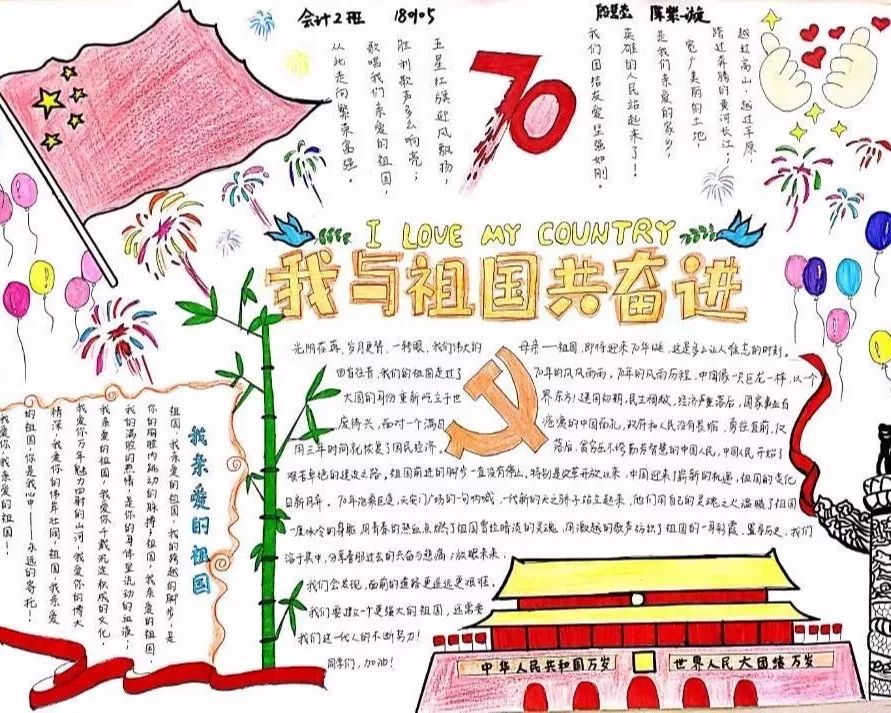 会计2班
五星红旗迎风飘扬,
胜利歌声多么响亮;
歌唱我们亲爱的祖国,
从此走向繁荣富强。
70
越过高山,越过平原,
跨过奔腾的黄河长江;
宽广美丽的土地,
是我们亲爱的家乡,
英雄的人民站起来了!
我们团结友爱坚强如刚。
I LOVE MY COUNTRY
我与祖国共奋进
光阴在再,岁月更替,一转眼,我们伟大的母亲——祖国,即将迎来70年,这是多么让人难忘的时刻,
回首往昔,我们的祖国走过了70年的风风雨雨,70年的风雨历程,中国像一只巨龙一样,以一个
大国的身份重新屹立于世界东方!建国初期,民生凋敝,经济严重落后,国家事业百
废待兴,面对一个满目疮痍的中国面孔,政府和人民没有畏缩,勇往直前,仅
用三年时间就恢复了国民经济。落后,贫穷压不垮勤劳智慧的中国人民,中国人民开始了
艰苦卓绝的建设之路,祖国前进的脚步一直没有停止,特别是改革开放以来,中国迎来了崭新的机遇,祖国的变化
日新月异。70年沧桑巨变,天安门广场的一句呐喊,一代新的天之骄子站立起来,他们用自己的灵魂之火温暖了祖国
一度冰冷的身躯,用青春的热血点燃了祖国曾经暗淡的灵魂,用激越的歌声纺织了祖国的一身彩霞。置身历史,我们
溶于其中,分享着那过去的兴奋与悲痛;放眼未来,
我们会发现,面前的道路更遥远更艰难,
我们要建立一个更强大的祖国,还需要
我们这一代人的不断努力!
同学们,加油!
我亲爱的祖国
祖国,我亲爱的祖国,我的跨越的脚步,是
你的胸腔内跳动的脉搏;祖国,我亲爱的祖国,
我的满腔的热情,是你的身体里流动的血液;
我亲爱的祖国,我爱你千载沉淀积成的文化,
我爱你万年魅力四射的山河,我爱你的博大
精深,我爱你的伟岸壮阔,祖国,我亲爱
的祖国,你是我心中——永远的寄托!
我爱你,我亲爱的祖国!
中华人民共和国万岁
世界人民大团结万岁